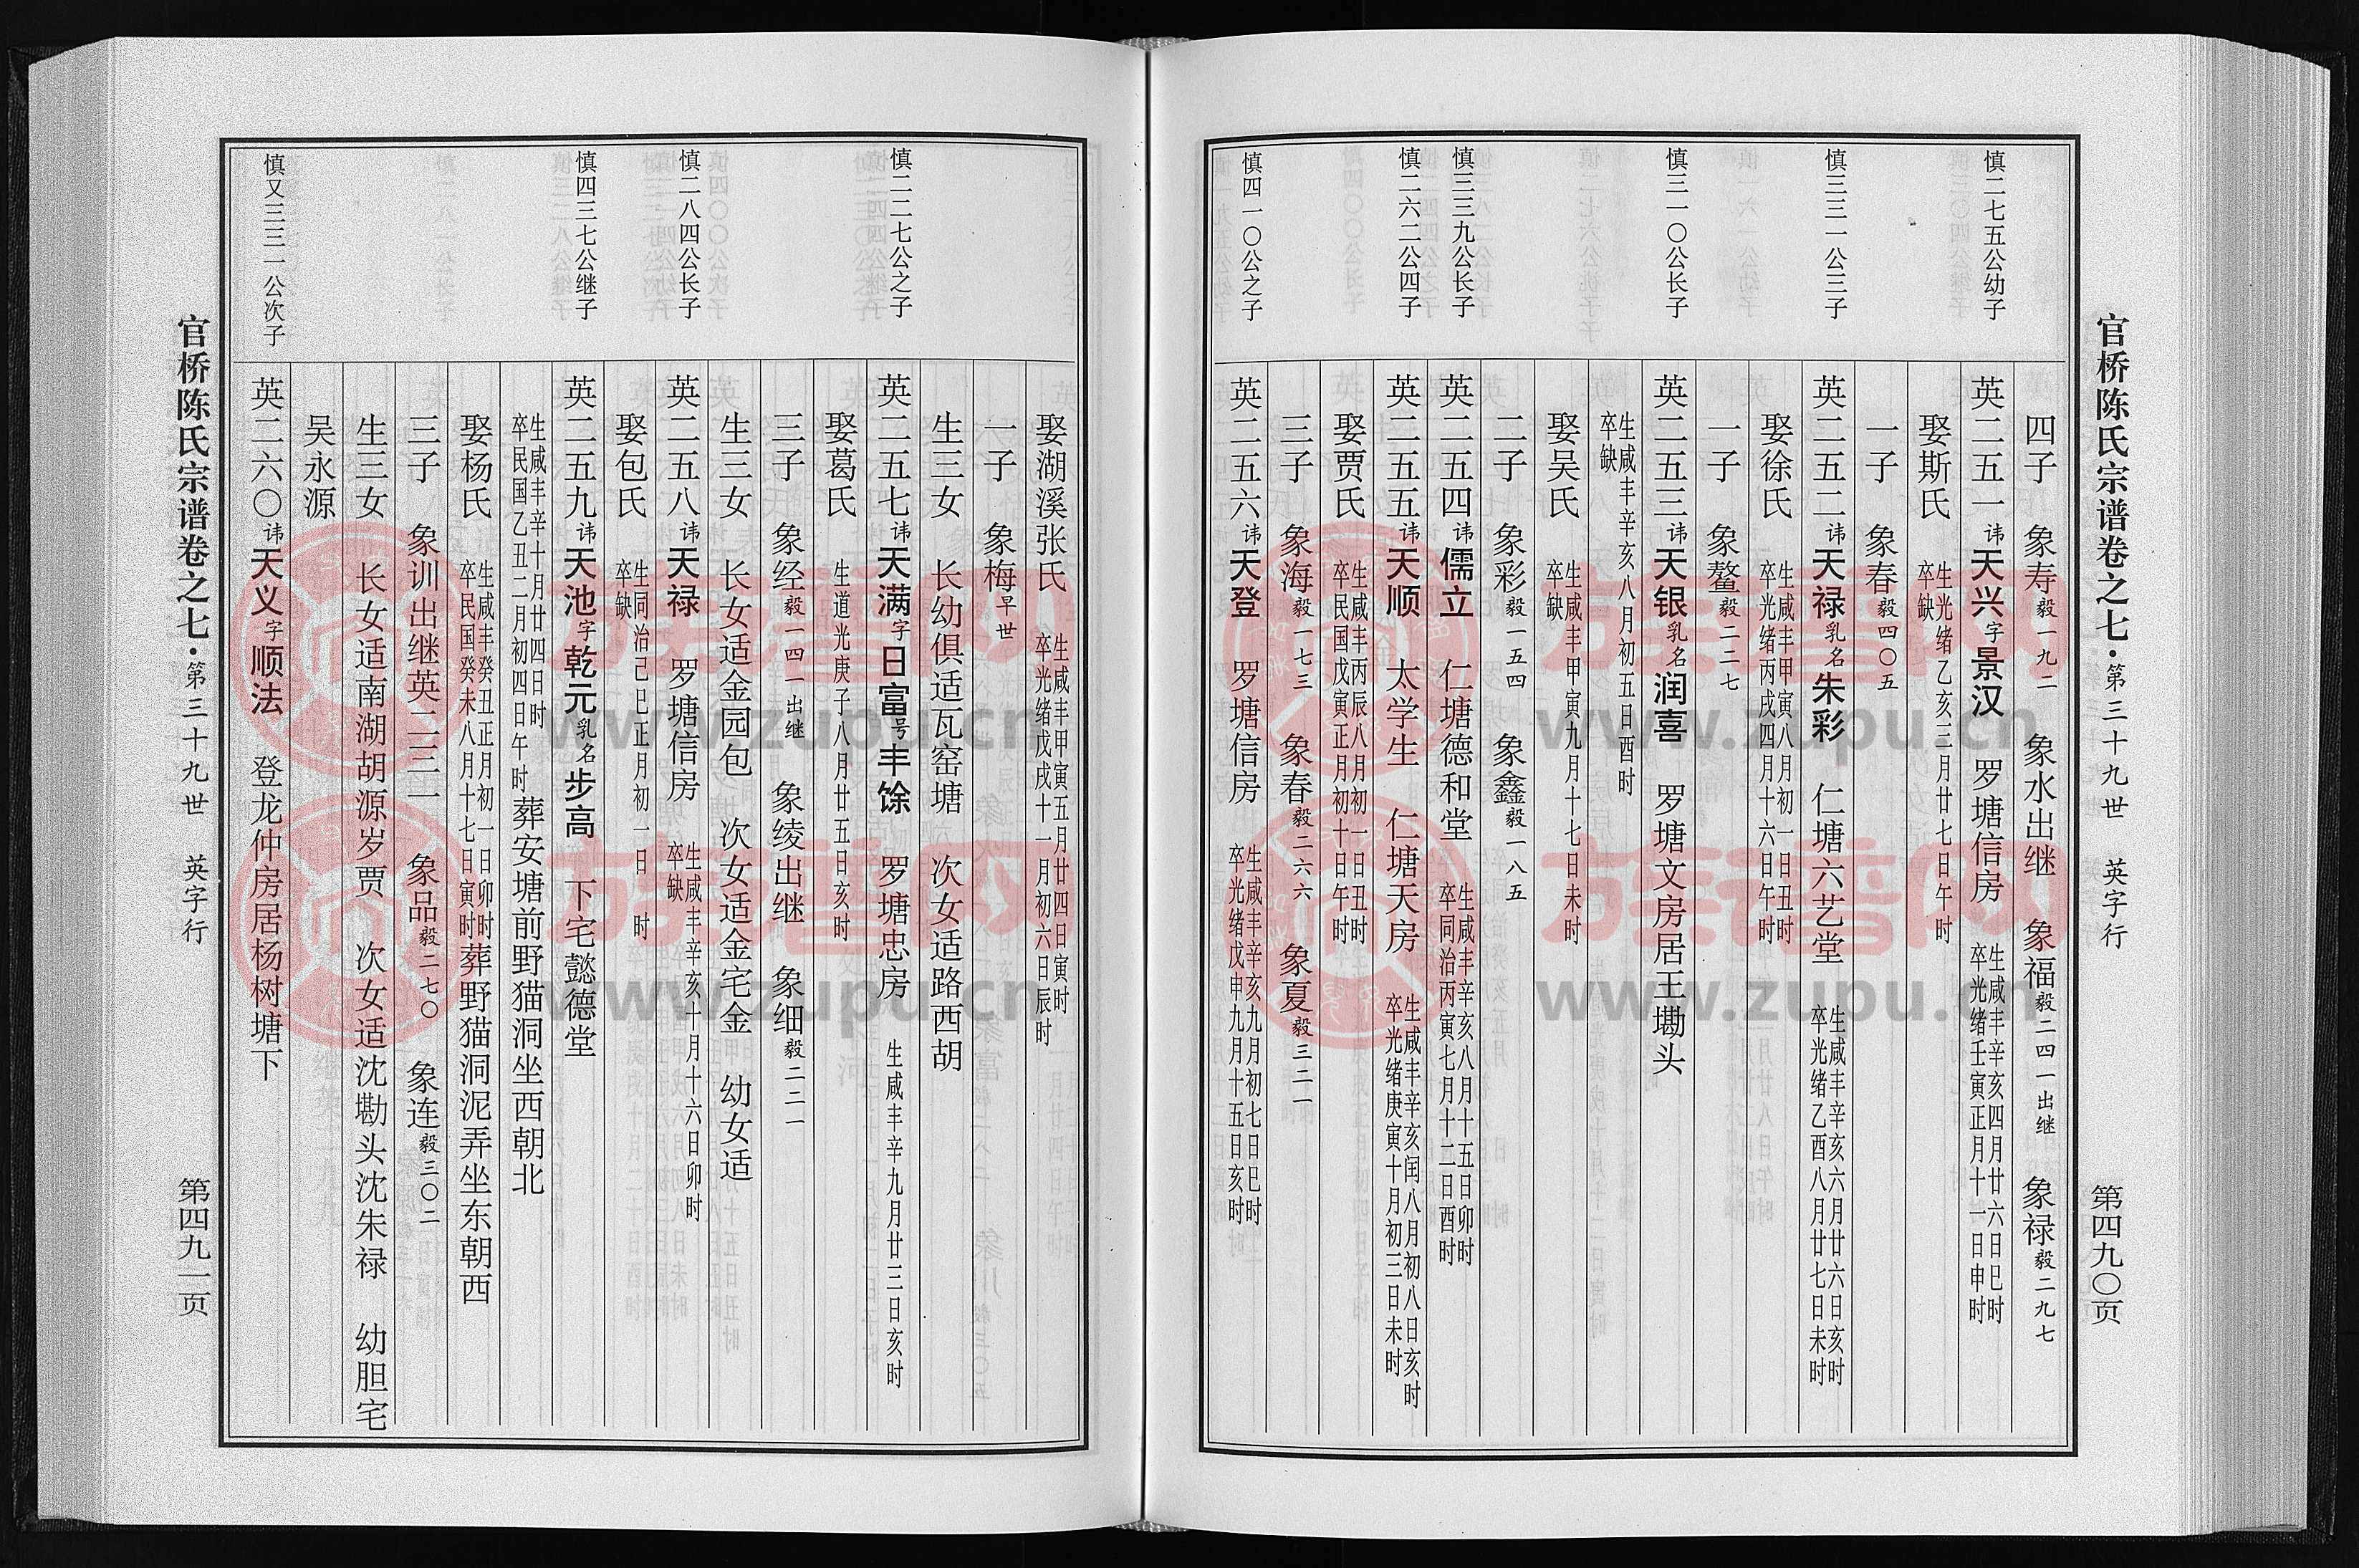 官桥陈氏宗谱卷之七·第三十九世 英字行 第四九〇页
四子 象寿毅一九二 象水出继 象福毅二四一出继 象禄毅二九七
慎二七五公幼子
英二五一讳天兴字景汉 罗塘信房 生咸丰辛亥四月廿六日巳时 卒光绪壬寅正月十一日申时
娶斯氏 生光绪乙亥三月廿七日午时 卒缺
一子 象春毅四〇五
慎三三一公三子
英二五二讳天禄乳名朱彩 仁塘六艺堂 生咸丰辛亥六月廿六日亥时 卒光绪乙酉八月廿七日未时
娶徐氏 生咸丰甲寅八月初一日丑时 卒光绪丙戌四月十六日午时
一子 象鳌毅二二七
慎三一〇公长子
英二五三讳天银乳名润喜 罗塘文房居王墈头
生咸丰辛亥八月初五日酉时 卒缺
娶吴氏 生咸丰甲寅九月十七日未时 卒缺
二子 象彩毅一五四 象鑫毅一八五
慎三三九公长子
英二五四讳儒立 仁塘德和堂 生咸丰辛亥八月十五日卯时 卒同治丙寅七月十二日酉时
慎二六二公四子
英二五五讳天顺 太学生 仁塘天房 生咸丰辛亥闰八月初八日亥时 卒光绪庚寅十月初三日未时
娶贾氏 生咸丰丙辰八月初一日丑时 卒民国戊寅正月初十日午时
三子 象海毅一七三 象春毅二六六 象夏毅三二一
慎四一〇公之子
英二五六讳天登 罗塘信房 生咸丰辛亥九月初七日巳时 卒光绪戊申九月十五日亥时
娶湖溪张氏 生咸丰甲寅五月廿四日寅时 卒光绪戊戌十一月初六日辰时
一子 象梅早世
生三女 长幼俱适瓦窑塘 次女适路西胡
慎二二七公之子
英二五七讳天满字日富号丰馀 罗塘忠房 生咸丰辛九月廿三日亥时
娶葛氏 生道光庚子八月廿五日亥时
三子 象经毅一四一出继 象绫出继 象细毅二二一
生三女 长女适金园包 次女适金宅金 幼女适
慎二八四公长子
英二五八讳天禄 罗塘信房 生咸丰辛亥十月十六日卯时 卒缺
娶包氏 生同治己巳正月初一日 时 卒缺
慎四三七公继子
英二五九讳天池字乾元乳名步高 下宅懿德堂
生咸丰辛十月廿四日时 卒民国乙丑二月初四日午时 葬安塘前野猫洞坐西朝北
娶杨氏 生咸丰癸丑正月初一日卯时 卒民国癸未八月十七日寅时 葬野猫洞泥弄坐东朝西
三子 象训出继英二三二 象品毅二七〇 象连毅三〇二
生三女 长女适南湖胡源岁贾 次女适沈墈头沈朱禄 幼胆宅
吴永源
慎又三三一公次子
英二六〇讳天义字顺法 登龙仲房居杨树塘下
官桥陈氏宗谱卷之七·第三十九世 英字行 第四九一页
族谱网
www.zupu.cn
族谱网
www.zupu.cn
族谱网
www.zupu.cn
族谱网
www.zupu.cn